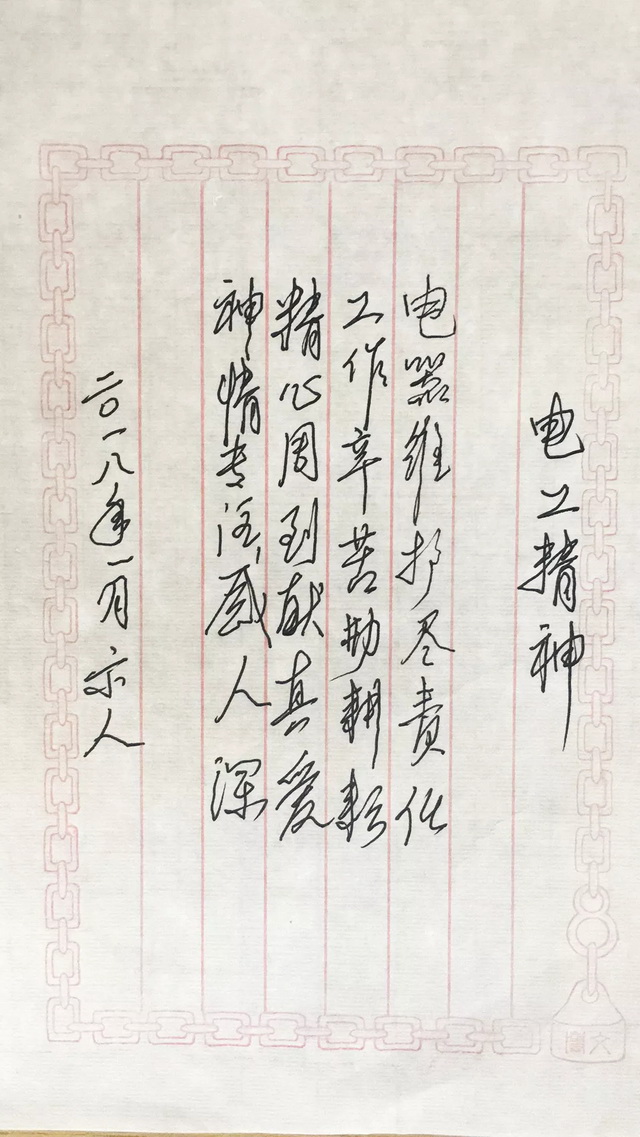 电工精神
电器维护尽责任
工作辛苦勤耕耘
精心周到献真爱
神情专注感人深
二〇一八年一月 亦人